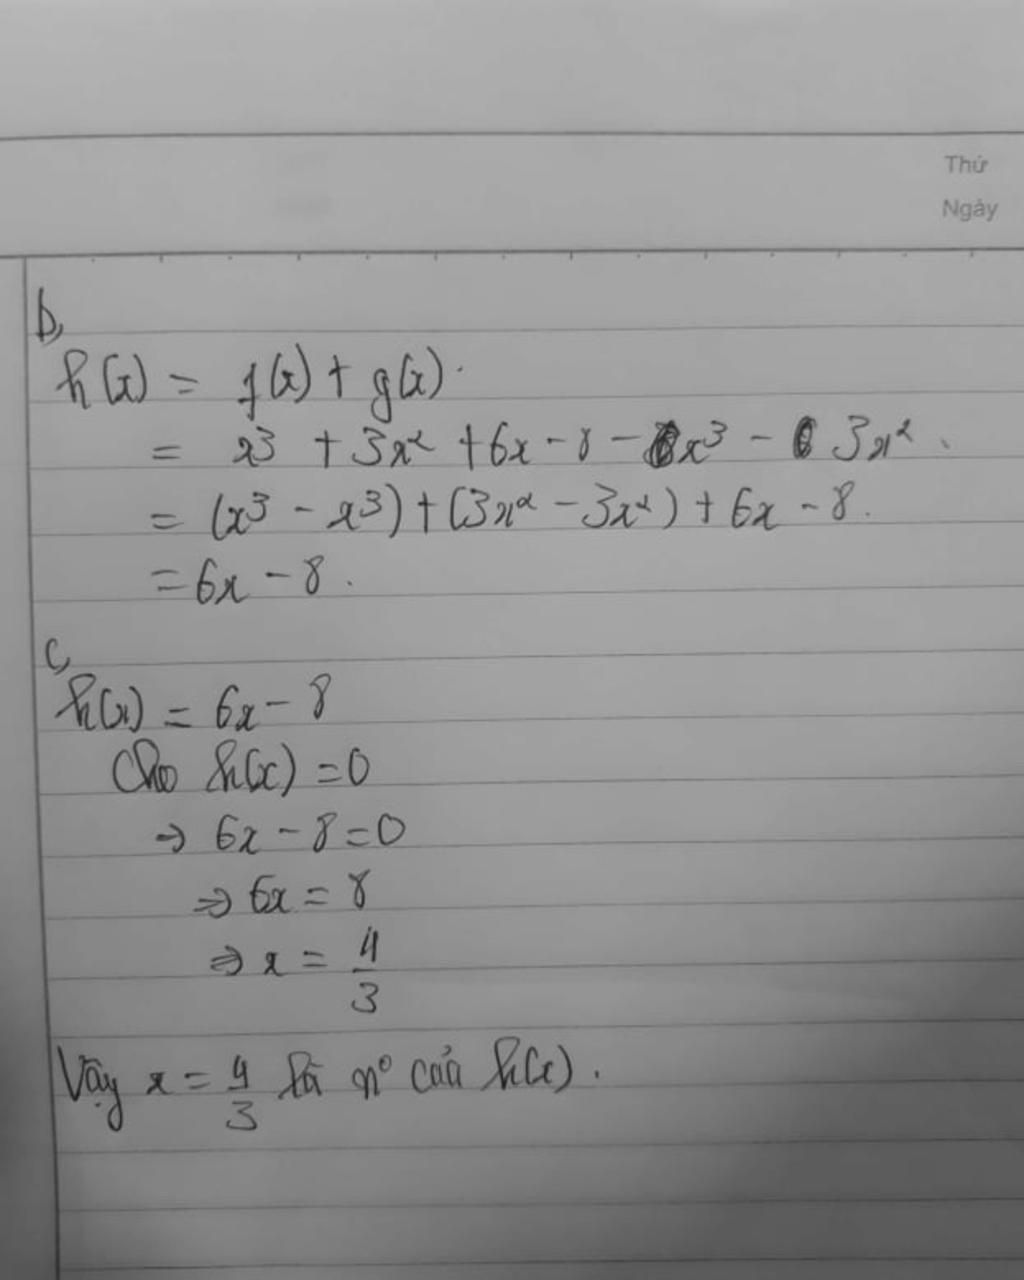 Thứ
Ngày
b,
h(x) = f(x) + g(x).
= x³ + 3x² + 6x - 8 - x³ - 3x².
= (x³ - x³) + (3x² - 3x²) + 6x - 8.
= 6x - 8.
c,
h(x) = 6x - 8
Cho h(x) = 0
⇒ 6x - 8 = 0
⇒ 6x = 8
⇒ x = 4/3
Vậy x = 4/3 là n° của h(x).